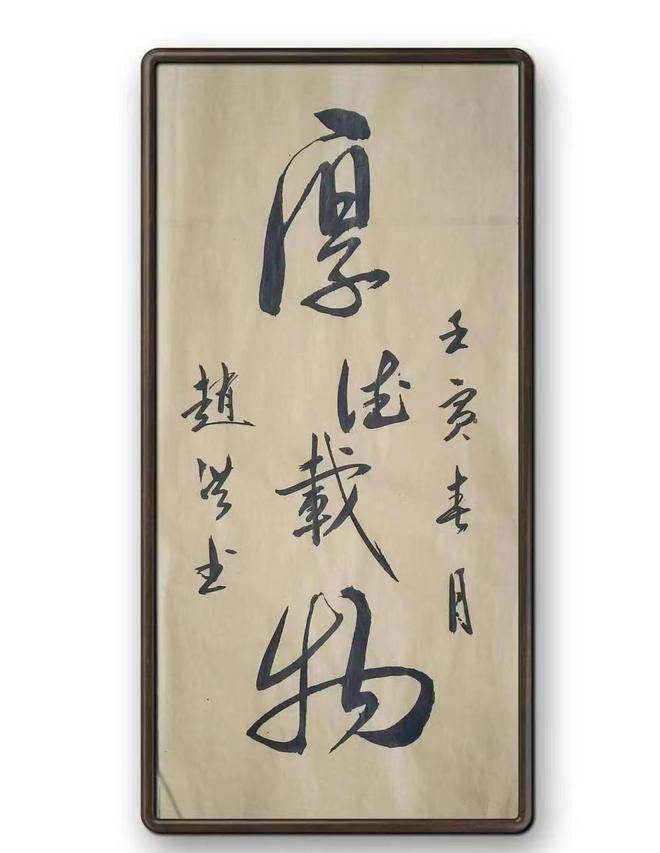 壬寅春月
厚德載物
趙洪书